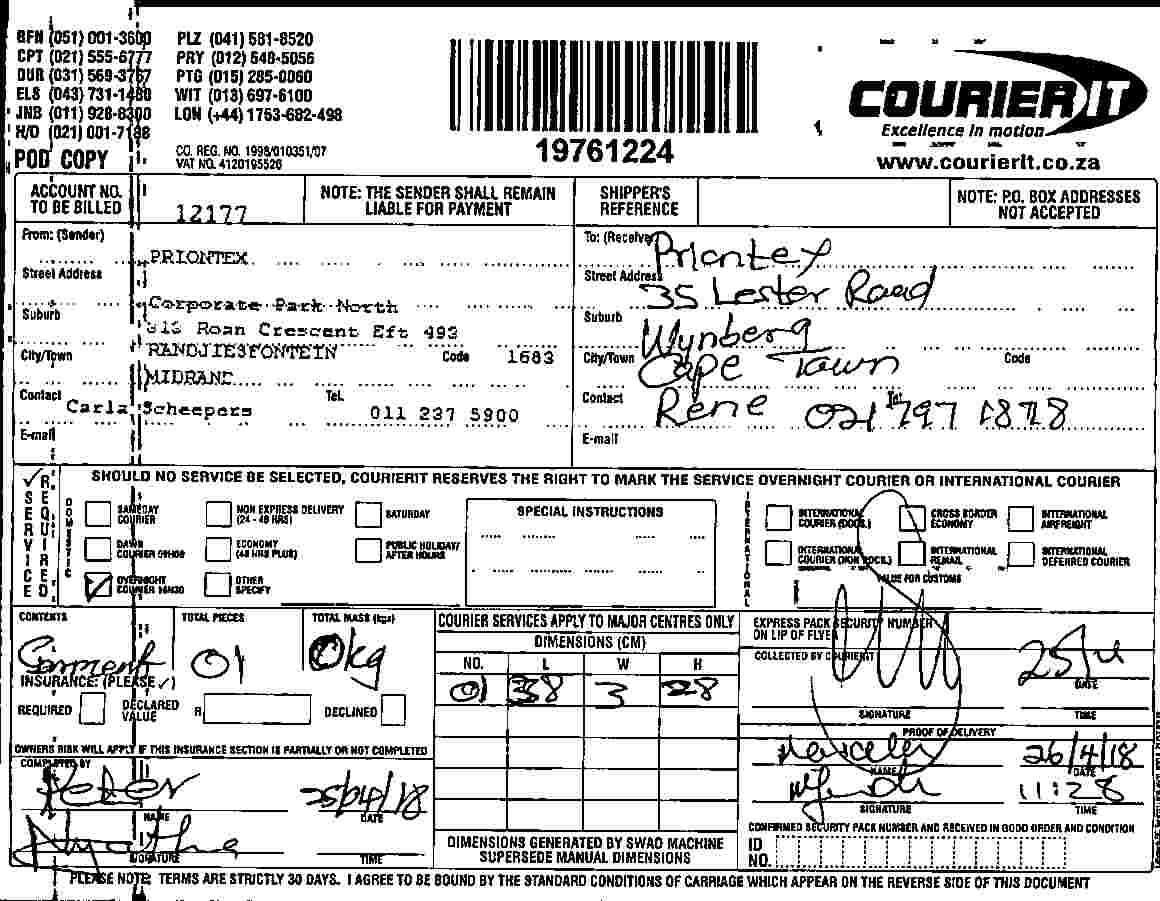 BFN (051) 001-3600 PLZ (041) 581-8520
CPT (021) 555-6777 PRY (012) 548-5056
DUR (031) 569-3767 PTG (015) 285-0060
ELS (043) 731-1480 WIT (013) 697-6100
JNB (011) 928-8300 LON (+44) 1753-682-498
H/O (021) 001-7188
POD COPY
CO. REG. NO. 1998/010351/07
VAT NO. 4120195526
19761224
COURIER IT
Excellence in motion
www.courierit.co.za
ACCOUNT NO. TO BE BILLED 12177
NOTE: THE SENDER SHALL REMAIN LIABLE FOR PAYMENT
SHIPPER'S REFERENCE
NOTE: P.O. BOX ADDRESSES NOT ACCEPTED
From: (Sender) PRIONTEX
Street Address
Corporate Park North
Suburb
Roan Crescent Eft 493
City/Town RANDJIESFONTEIN Code 1683
MIDRAND
Contact Carla Scheepers Tel. 011 237 5900
E-mail
To: (Receiver) Priontex
Street Address 35 Lester Road
Suburb Wynberg
City/Town Cape Town Code
Contact Rene Tel 021 797 1878
E-mail
SHOULD NO SERVICE BE SELECTED, COURIERIT RESERVES THE RIGHT TO MARK THE SERVICE OVERNIGHT COURIER OR INTERNATIONAL COURIER
✓ SERVICE REQUIRED
DOMESTIC
SAMEDAY COURIER
NON EXPRESS DELIVERY (24 - 48 HRS)
SATURDAY
DAWN COURIER 09H00
ECONOMY (48 HRS PLUS)
PUBLIC HOLIDAY/ AFTER HOURS
OVERNIGHT COURIER 10H30
OTHER SPECIFY
SPECIAL INSTRUCTIONS
INTERNATIONAL
INTERNATIONAL COURIER (DOCS.)
CROSS BORDER ECONOMY
INTERNATIONAL AIRFREIGHT
INTERNATIONAL COURIER (NON DOCS.)
INTERNATIONAL REMAIL
INTERNATIONAL DEFERRED COURIER
VALUE FOR CUSTOMS
CONTENTS
Garment
TOTAL PIECES
01
TOTAL MASS (kgs)
0kg
INSURANCE: (PLEASE ✓)
REQUIRED DECLARED VALUE R DECLINED
OWNERS RISK WILL APPLY IF THIS INSURANCE SECTION IS PARTIALLY OR NOT COMPLETED
COMPLETED BY
Peter 25/04/18
NAME DATE
SIGNATURE TIME
COURIER SERVICES APPLY TO MAJOR CENTRES ONLY
DIMENSIONS (CM)
NO. L W H
01 38 3 28
DIMENSIONS GENERATED BY SWAO MACHINE SUPERSEDE MANUAL DIMENSIONS
EXPRESS PACK SECURITY NUMBER ON LIP OF FLYER
COLLECTED BY COURIERIT
DATE
SIGNATURE TIME
PROOF OF DELIVERY
26/4/18
NAME DATE
11:28
SIGNATURE TIME
CONFIRMED SECURITY PACK NUMBER AND RECEIVED IN GOOD ORDER AND CONDITION
ID NO.
PLEASE NOTE: TERMS ARE STRICTLY 30 DAYS. I AGREE TO BE BOUND BY THE STANDARD CONDITIONS OF CARRIAGE WHICH APPEAR ON THE REVERSE SIDE OF THIS DOCUMENT